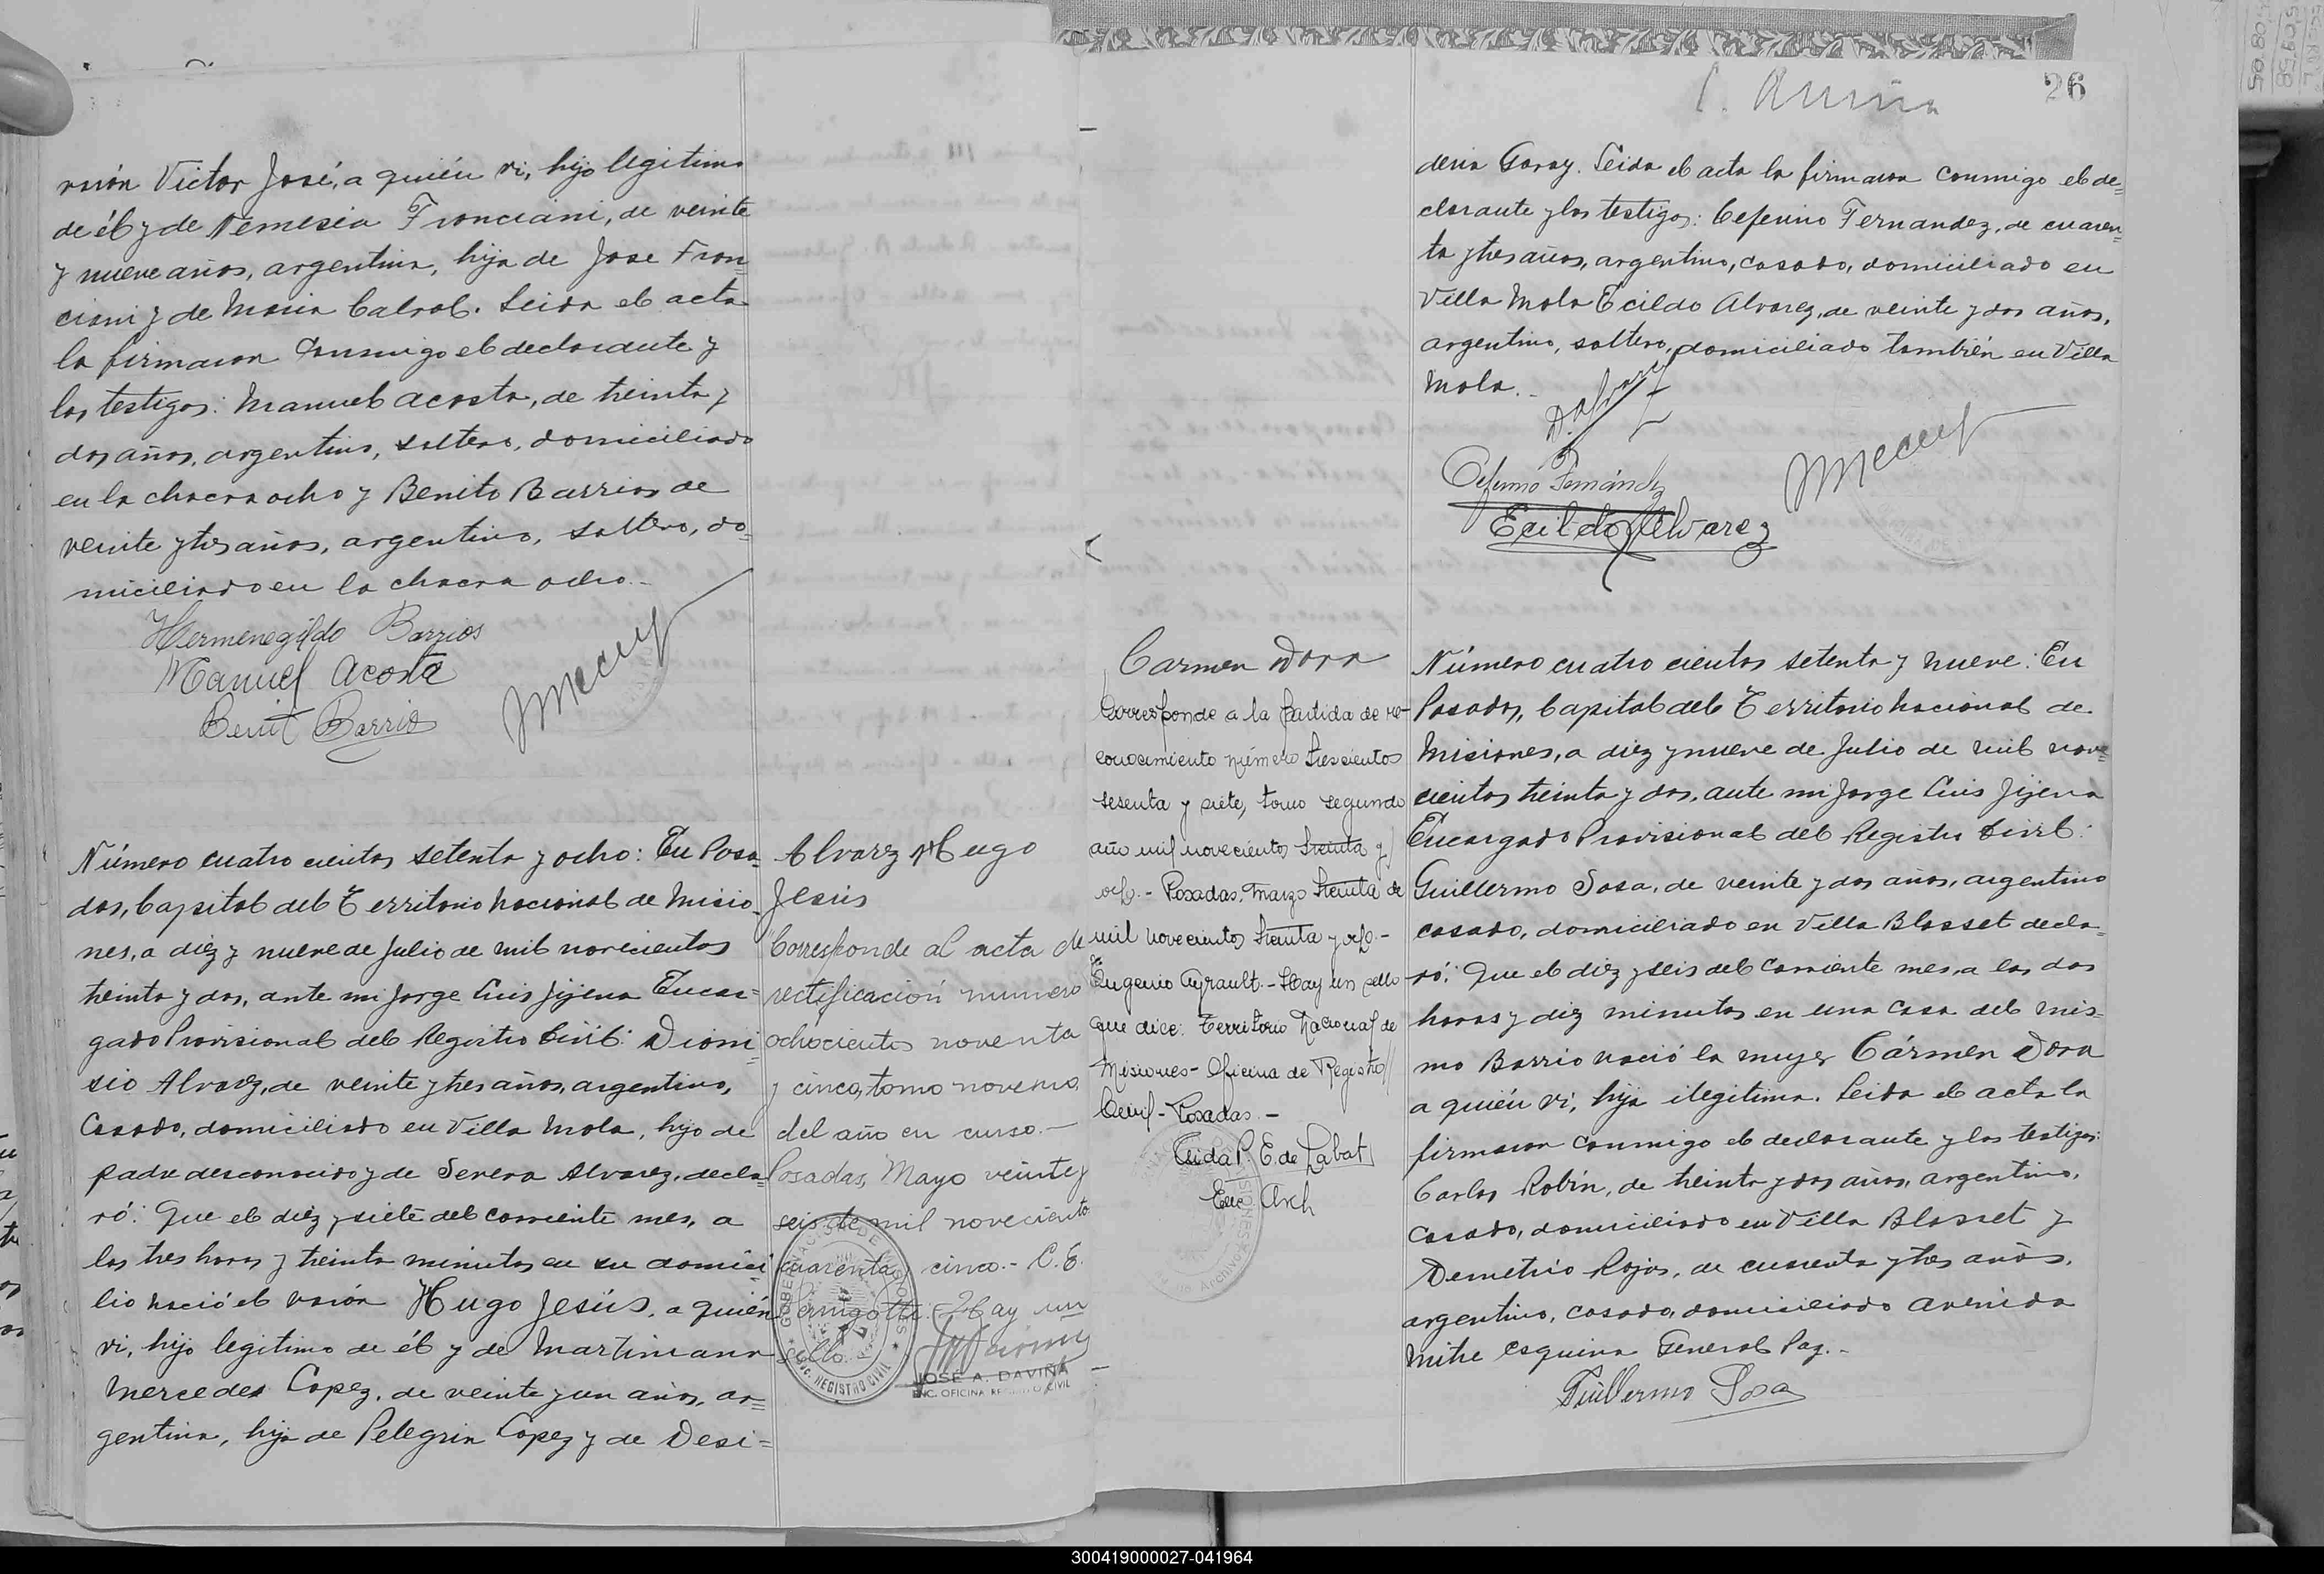 varón Victor José, a quién vi, hijo legitimo
de él y de Nemesia Fronciani, de veinte
y nueve años, argentina, hija de Jose Fron=
ciani y de Maria Cabral. Leida el acta
la firmaron conmigo el declarante y
los testigos: Manuel Acosta, de treinta y
dos años, argentino, soltero, domiciliado
en la chacra ocho y Benito Barrios de
veinte y tres años, argentino, soltero, do=
miciliado en la chacra ocho.-
Hermenegildo Barrios
Manuel Acosta
Benito Barrios
Número cuatro cientos setenta y ocho: En Posa=
das, Capital del Territorio Nacional de Misio=
nes, a diez y nueve de Julio de mil novecientos
treinta y dos, ante mi Jorge Luis Jijena Encar=
gado Provisional del Registro Civil: Dioni
sio Alvarez, de veinte y tres años, argentino,
Casado, domiciliado en Villa Mola, hijo de
padre desconocido y de Severa Alvarez, decla=
ró: Que el diez y siete del corriente mes, a
las tres horas y treinta minutos en su domici
lio nació el varón Hugo Jesús, a quién
vi, hijo legitimo de él y de Martiniana
Mercedes Lopez, de veinte y un años, ar=
gentina, hija de Pelegrin Lopez y de Desi=
Alvarez Hugo
Jesús
Corresponde al acta de
rectificación numero
ochocientos noventa
y cinco, tomo noveno
del año en curso.-
Posadas, Mayo veinte y
seis de mil novecientos
cuarenta y cinco.- C. E.
Hay un
sello
GOBERNACION DE MISIONES
REGISTRO CIVIL
JOSÉ A. DAVIÑA
ENC. OFICINA REGISTRO CIVIL
26
deria Garay. Leida el acta la firmaron conmigo el de=
clarante y los testigos: Ceferino Fernandez, de cuaren=
ta y tres años, argentino, casado, domiciliado en
Villa Mola Ecildo Alvarez, de veinte y dos años,
argentino, soltero, domiciliado también en Villa
Mola.-
Ceferino Fernández
Ecildo Alvarez
Carmen Dora
Corresponde a la partida de re-
conocimiento número trescientos
sesenta y siete, tomo segundo
año mil novecientos treinta y
ocho.- Posadas, Marzo treinta de
mil novecientos treinta y ocho.-
Eugenio Ayrault.- Hay un sello
que dice: Territorio Nacional de
Misiones- Oficina de Registro
Civil- Posadas.-
E. de Labat
Enc Arch
Número cuatro cientos setenta y nueve: En
Posadas, Capital del Territorio Nacional de
Misiones, a diez y nueve de Julio de mil nove=
cientos treinta y dos, ante mi Jorge Luis Jijena
Encargado Provisional del Registro Civil:
Guillermo Sosa, de veinte y dos años, argentino
casado, domiciliado en Villa Blosset decla=
ró: Que el diez y seis del corriente mes, a las dos
horas y diez minutos en una casa del mis=
mo Barrio nació la mujer Cármen Dora
a quién vi, hija ilegitima. Leida el acta la
firmaron conmigo el declarante y los testigos:
Carlos Robin, de treinta y dos años, argentino,
casado, domiciliado en Villa Blosset y
Demetrio Rojas, de cuarenta y tres años,
argentino, casado, domiciliado Avenida
Mitre esquina General Paz.-
Guillermo Sosa
300419000027-041964